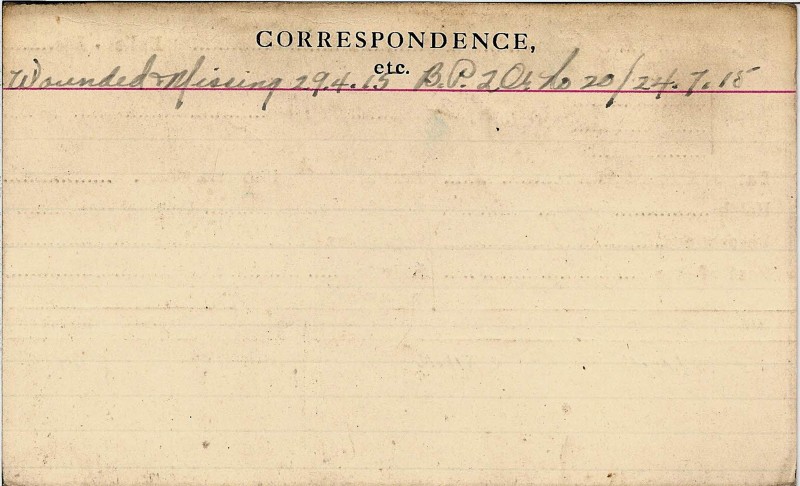 CORRESPONDENCE,
etc.
Wounded & Missing 29.4.15 B.P. 2 No 20/24.7.15